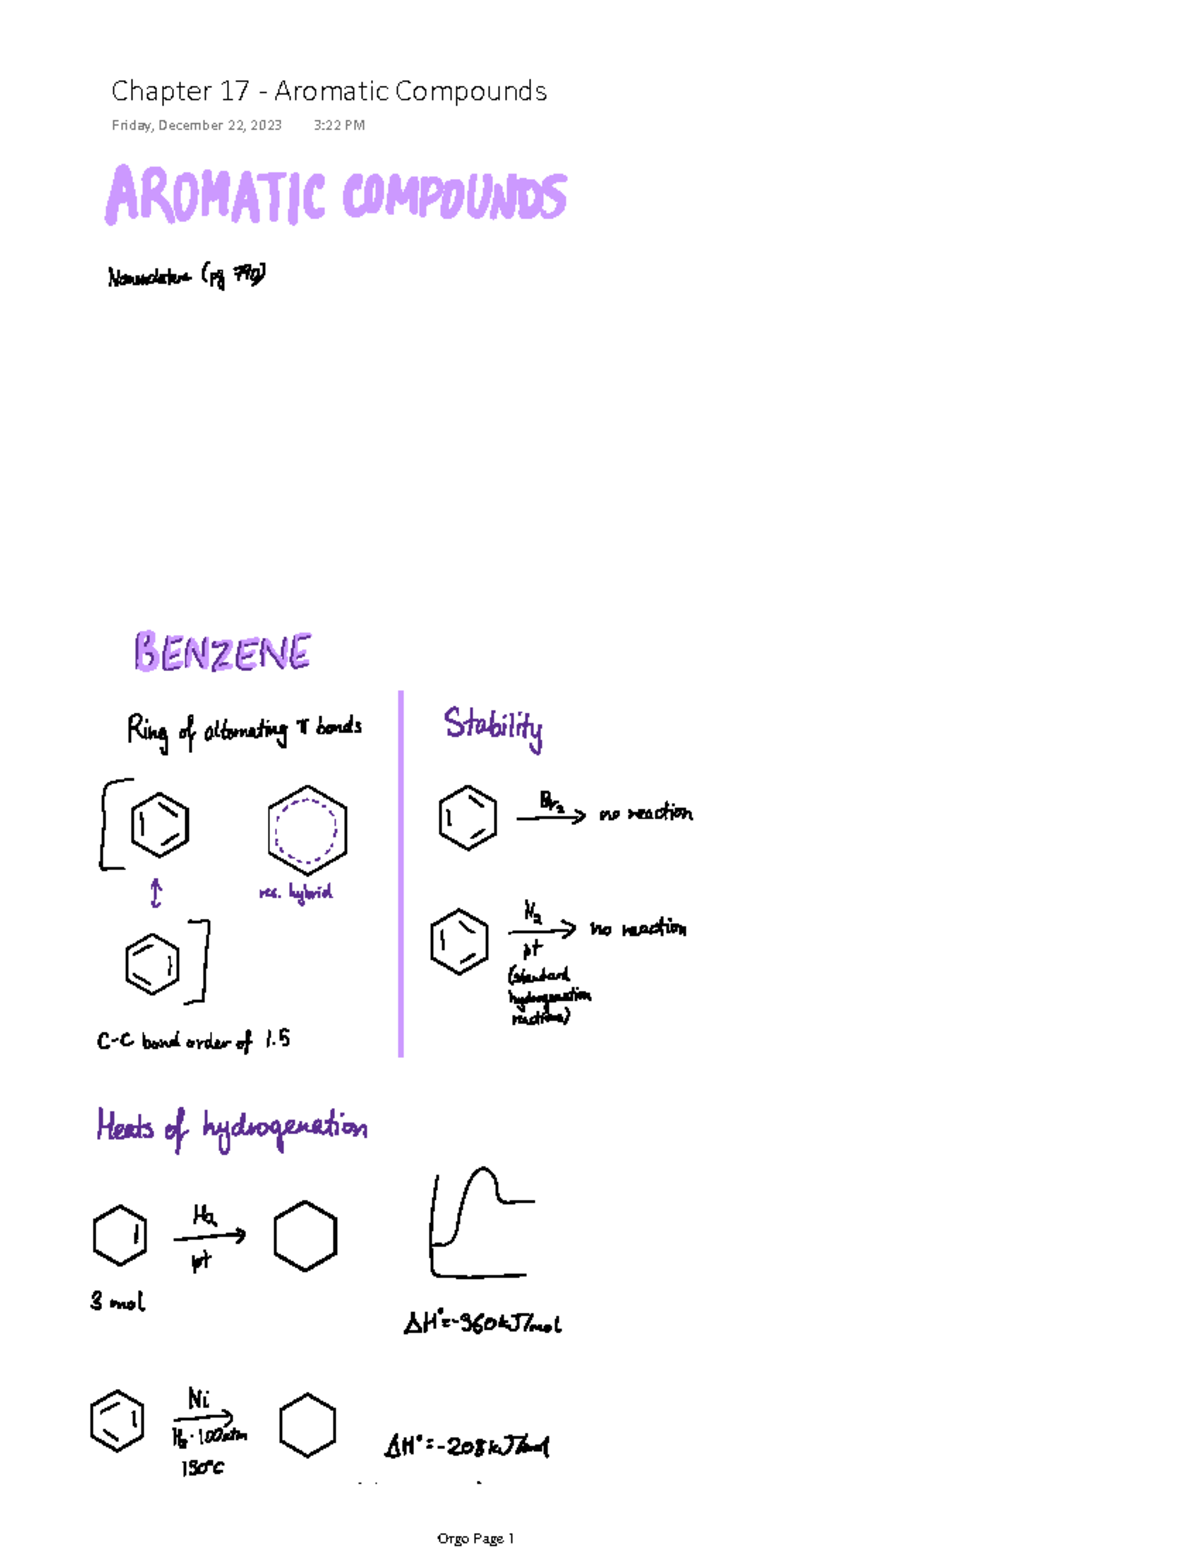 Chapter 17 - Aromatic Compounds
Friday, December 22, 2023 3:22 PM
AROMATIC COMPOUNDS
Nomenclature (pg 790)
BENZENE
Ring of alternating π bonds
res. hybrid
C-C bond order of 1.5
Stability
Br₂
no reaction
H₂
pt
no reaction
(standard
hydrogenation
reactions)
Heats of hydrogenation
H₂
pt
3 mol
ΔH°=-360kJ/mol
Ni
H₂ · 100atm
150°C
ΔH°=-208kJ/mol
Orgo Page 1